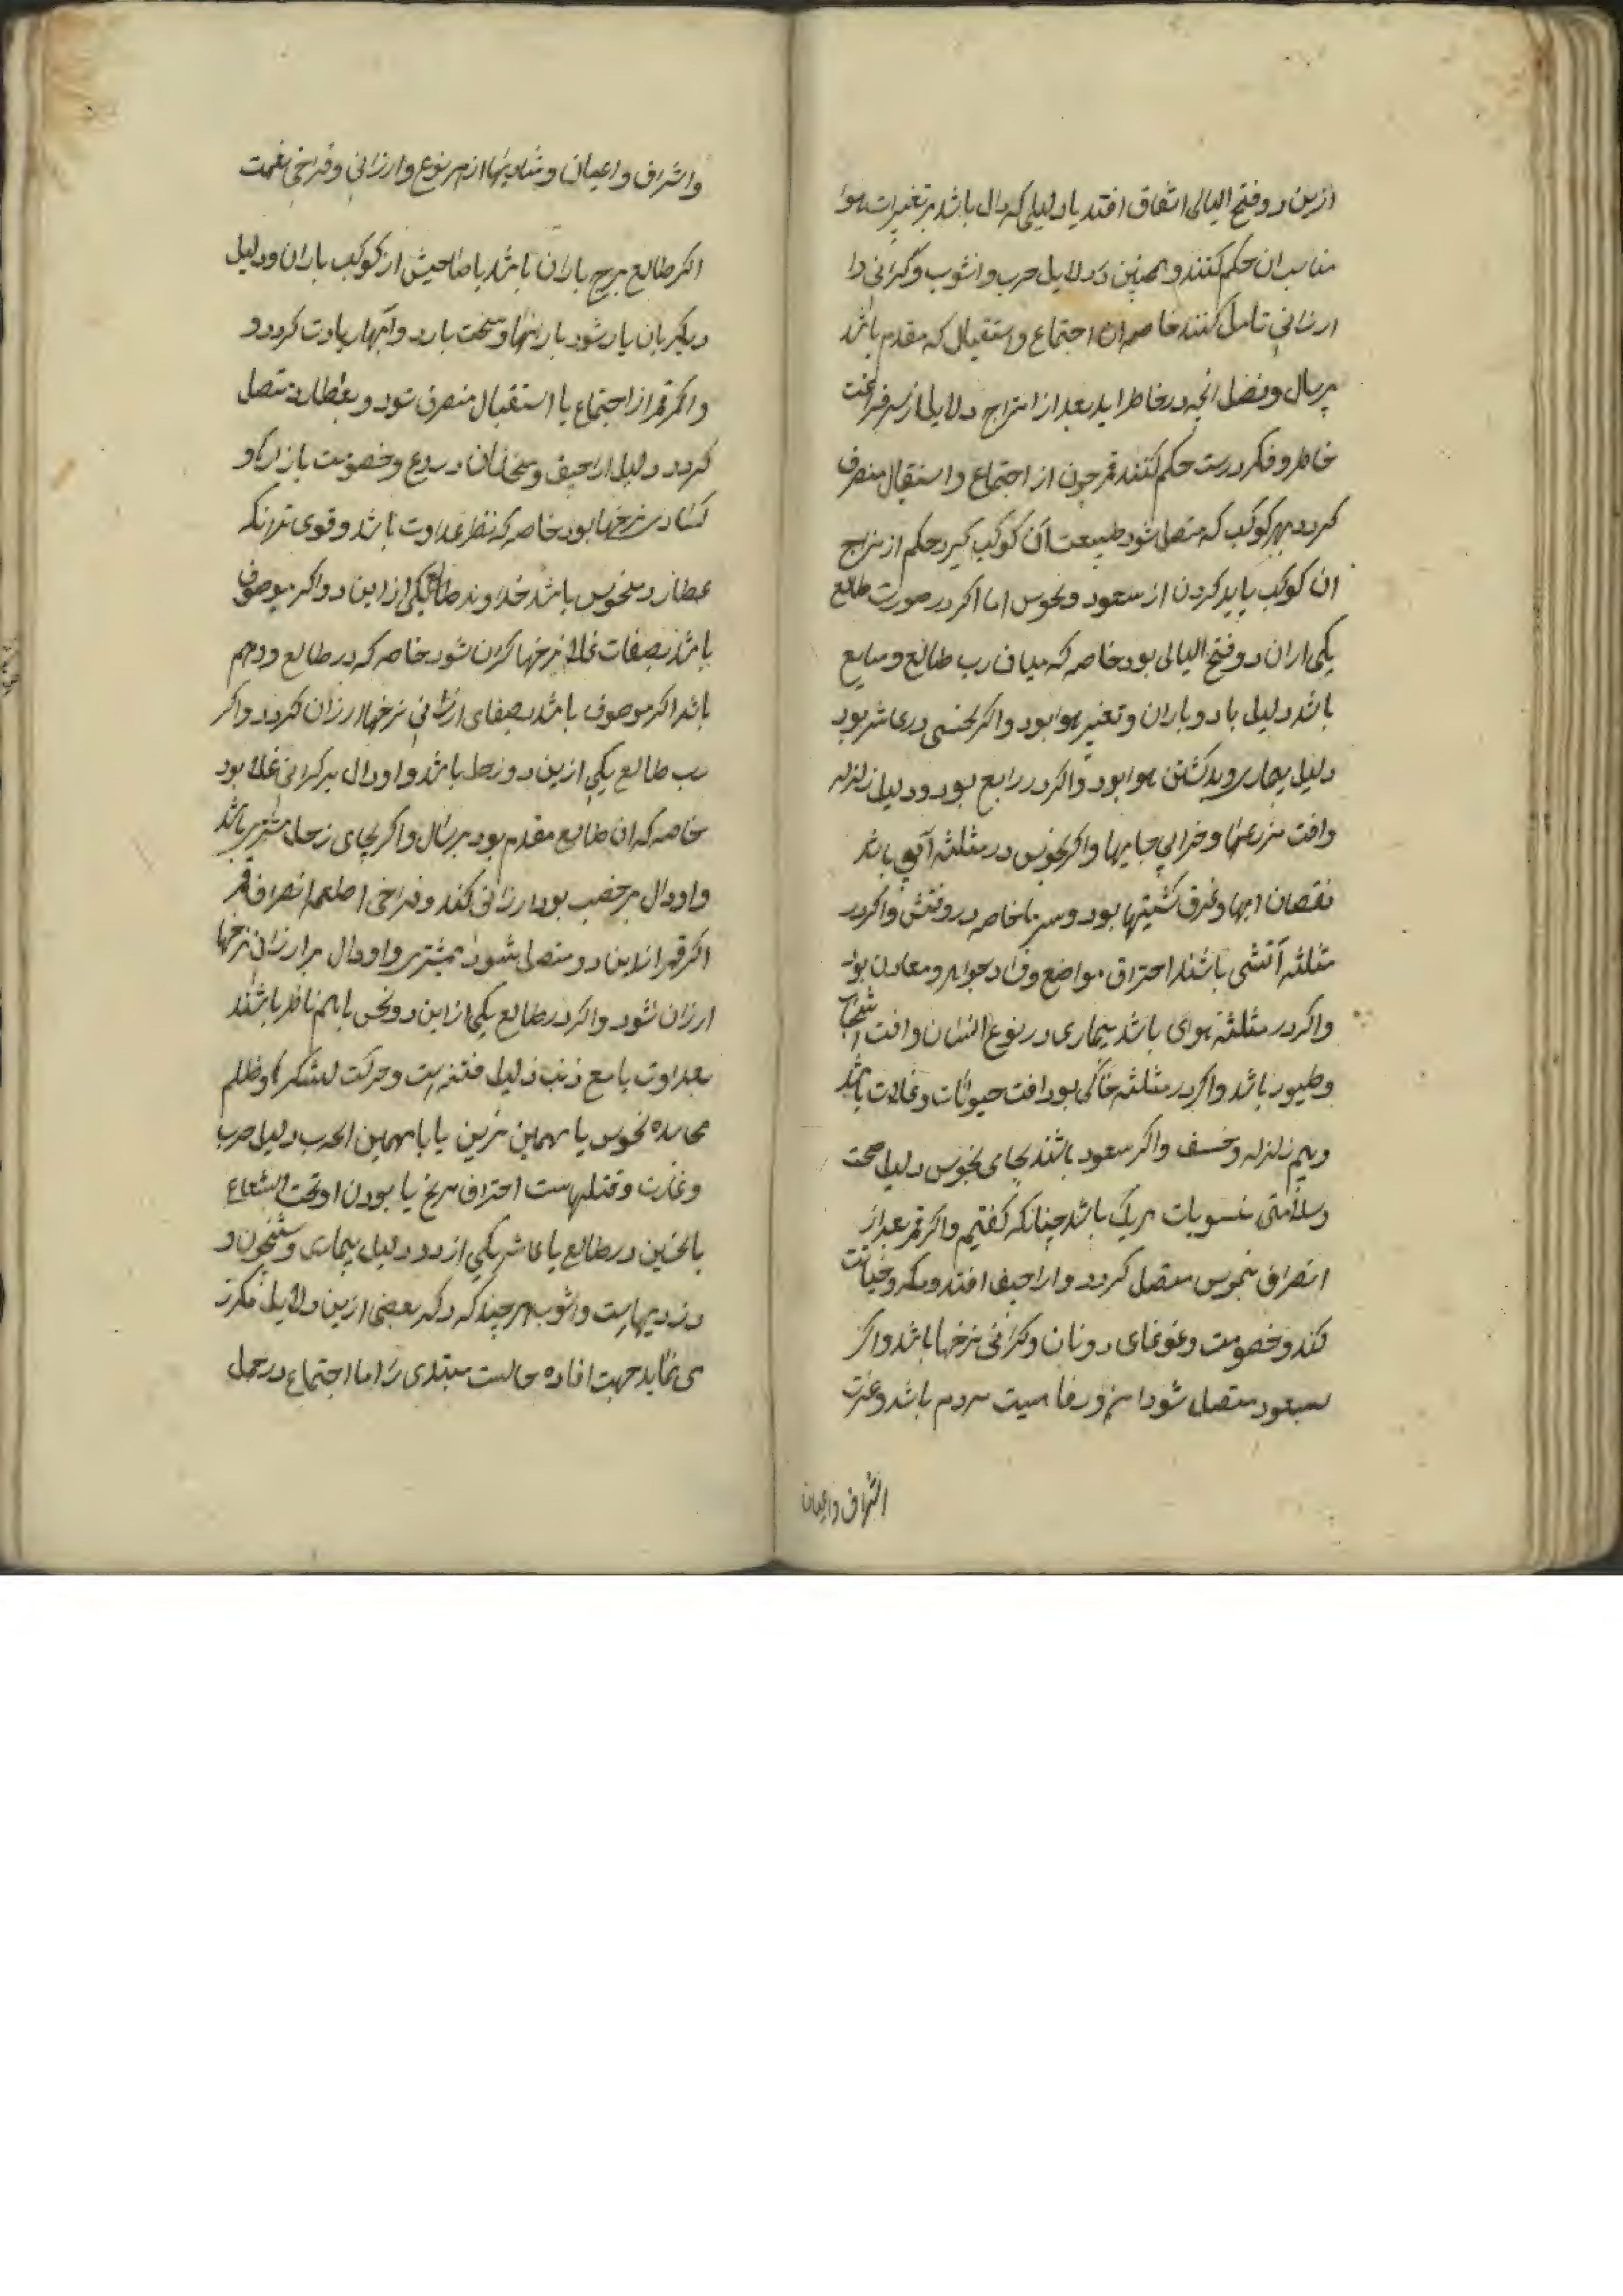 ازین دو فتح الیالی اتفاق افتد یا دلیلی که دال باشد بر تغیرات هوا
مناسب ان حکم کنند و همچنین در دلایل حرب و اشوب و کرانی و ا
ارزانی تامل کنند خاصه ان اجتماع و استقبال که مقدم باشد
بر سال و فصل انچه در خاطر اید بعد از امتزاج دلایل از سر فراغت
خاطر و فکر درست حکم کنند قمر چون از اجتماع و استقبال منصرف
کردد بهر کوکب که متصل شود طبیعت آن کوکب کیرد حکم از مزاج
ان کوکب باید کردن از سعود و نحوس اما اکر در صورت طالع
یکی ازان دو فتح الیالی بود خاصه که میان رب طالع و سابع
باشد دلیل باد و باران و تغیر هوا بود و اکر نحسی در عاشر بود
دلیل بیماری و بد کشتن هوا بود و اکر در رابع بود و دلیل زلزله
وافت مزرعها و خرابی جایها و اکر نحوس در مثلثه آبی باشد
نقصان ابها و غرق کشتیها بود و سرما خاصه در و اکر در
مثلثه آتشی باشند احتراق مواضع و فساد جواهر و معادن بود
واکر در مثلثه هوای باشد بیماری در نوع انسان وافت اشجار
و طیور باشد و اکر در مثلثه خاکی بود افت حیوانات و غلات باشد
و بیم زلزله و خسف و اکر سعود باشند بجای نحوس دلیل صحت
و سلامتی منسوبات هر یک باشد چنانکه کفتیم و اکر قمر بعد از
انصراف بنحوس متصل کردد و اراجیف افتد و مکر و خیانت
کند و خصومت و غوغای دونان و کرانی نرخها باشد و اکر
بسعود متصل شود امن و رفاهیت مردم باشد و عزت
اشراف و اعیان
واشراف و اعیان و شادیها از هر نوع و ارزانی و فراخی نعمت
اکر طالع برج باران باشد یا صاحبش از کوکب باران و دلیل
دیکر بان یار شود بارانها و سخت بارد و آبها زیادت کردد و
و اکر قمر از اجتماع یا استقبال منصرف شود و بعطارد متصل
کردد دلیل اراجیف و سخنان دروغ و خصومت بازار و
کساد نرخها بود خاصه که نظر عداوت باشد و قوی تر انکه
عطارد منحوس باشد خداوند طالع یکی از این دو اکر موصوف
باشد بصفات غلا نرخها کران شود خاصه که در طالع و دهم
باشد اکر موصوف باشد بصفای ارزانی نرخها ارزان کردد و اکر
رب طالع یکی ازین دو زحل باشد و او دال بر کرانی غلا بود
خاصه که ان طالع مقدم بود بر سال و اکر بجای زحل مشتری باشد
و او دال بر خصب بود ارزانی کند و فراخی اطعمه انصراف قمر
اکر قمر از این دو متصل شود بمشتری و او دال بر ارزانی نرخها
ارزان شود و اکر در طالع یکی از این دو نحس با هم ناظر باشند
بعداوت یا مع ذنب دلیل فتنه است و حرکت لشکرها و ظلم
نحوس یا سهمین نیرین یا با سهمین الحرب دلیل حرب
و غارت و قتلهاست احتراق مریخ یا بودن او تحت الشعاع
بالنحسین در طالع یا عاشر یکی از دو دلیل بیماری و شبخون و
دزدیهاست و اشوب هر چند که ذکر بعضی ازین دلایل مکرر
می نماید جهت افاده حالت مبتدی را اما اجتماع در حمل